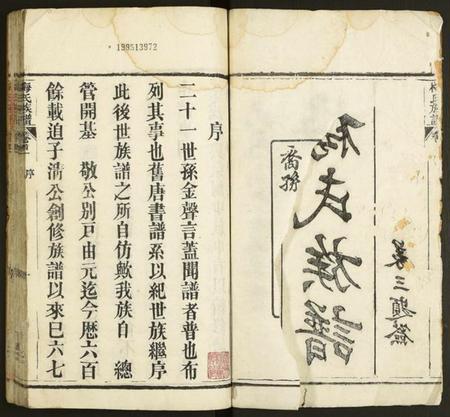 氏族譜
三題簽
199513972
序
二十一世孫金聲言蓋聞譜者普也布
列其事也舊唐書譜系以紀世族繼序
此後世族譜之所自仿歟我族自 總
管開基 敬公別戶由元迄今歷六百
餘載迨子淸公創修族譜以來巳六七
氏族譜 序